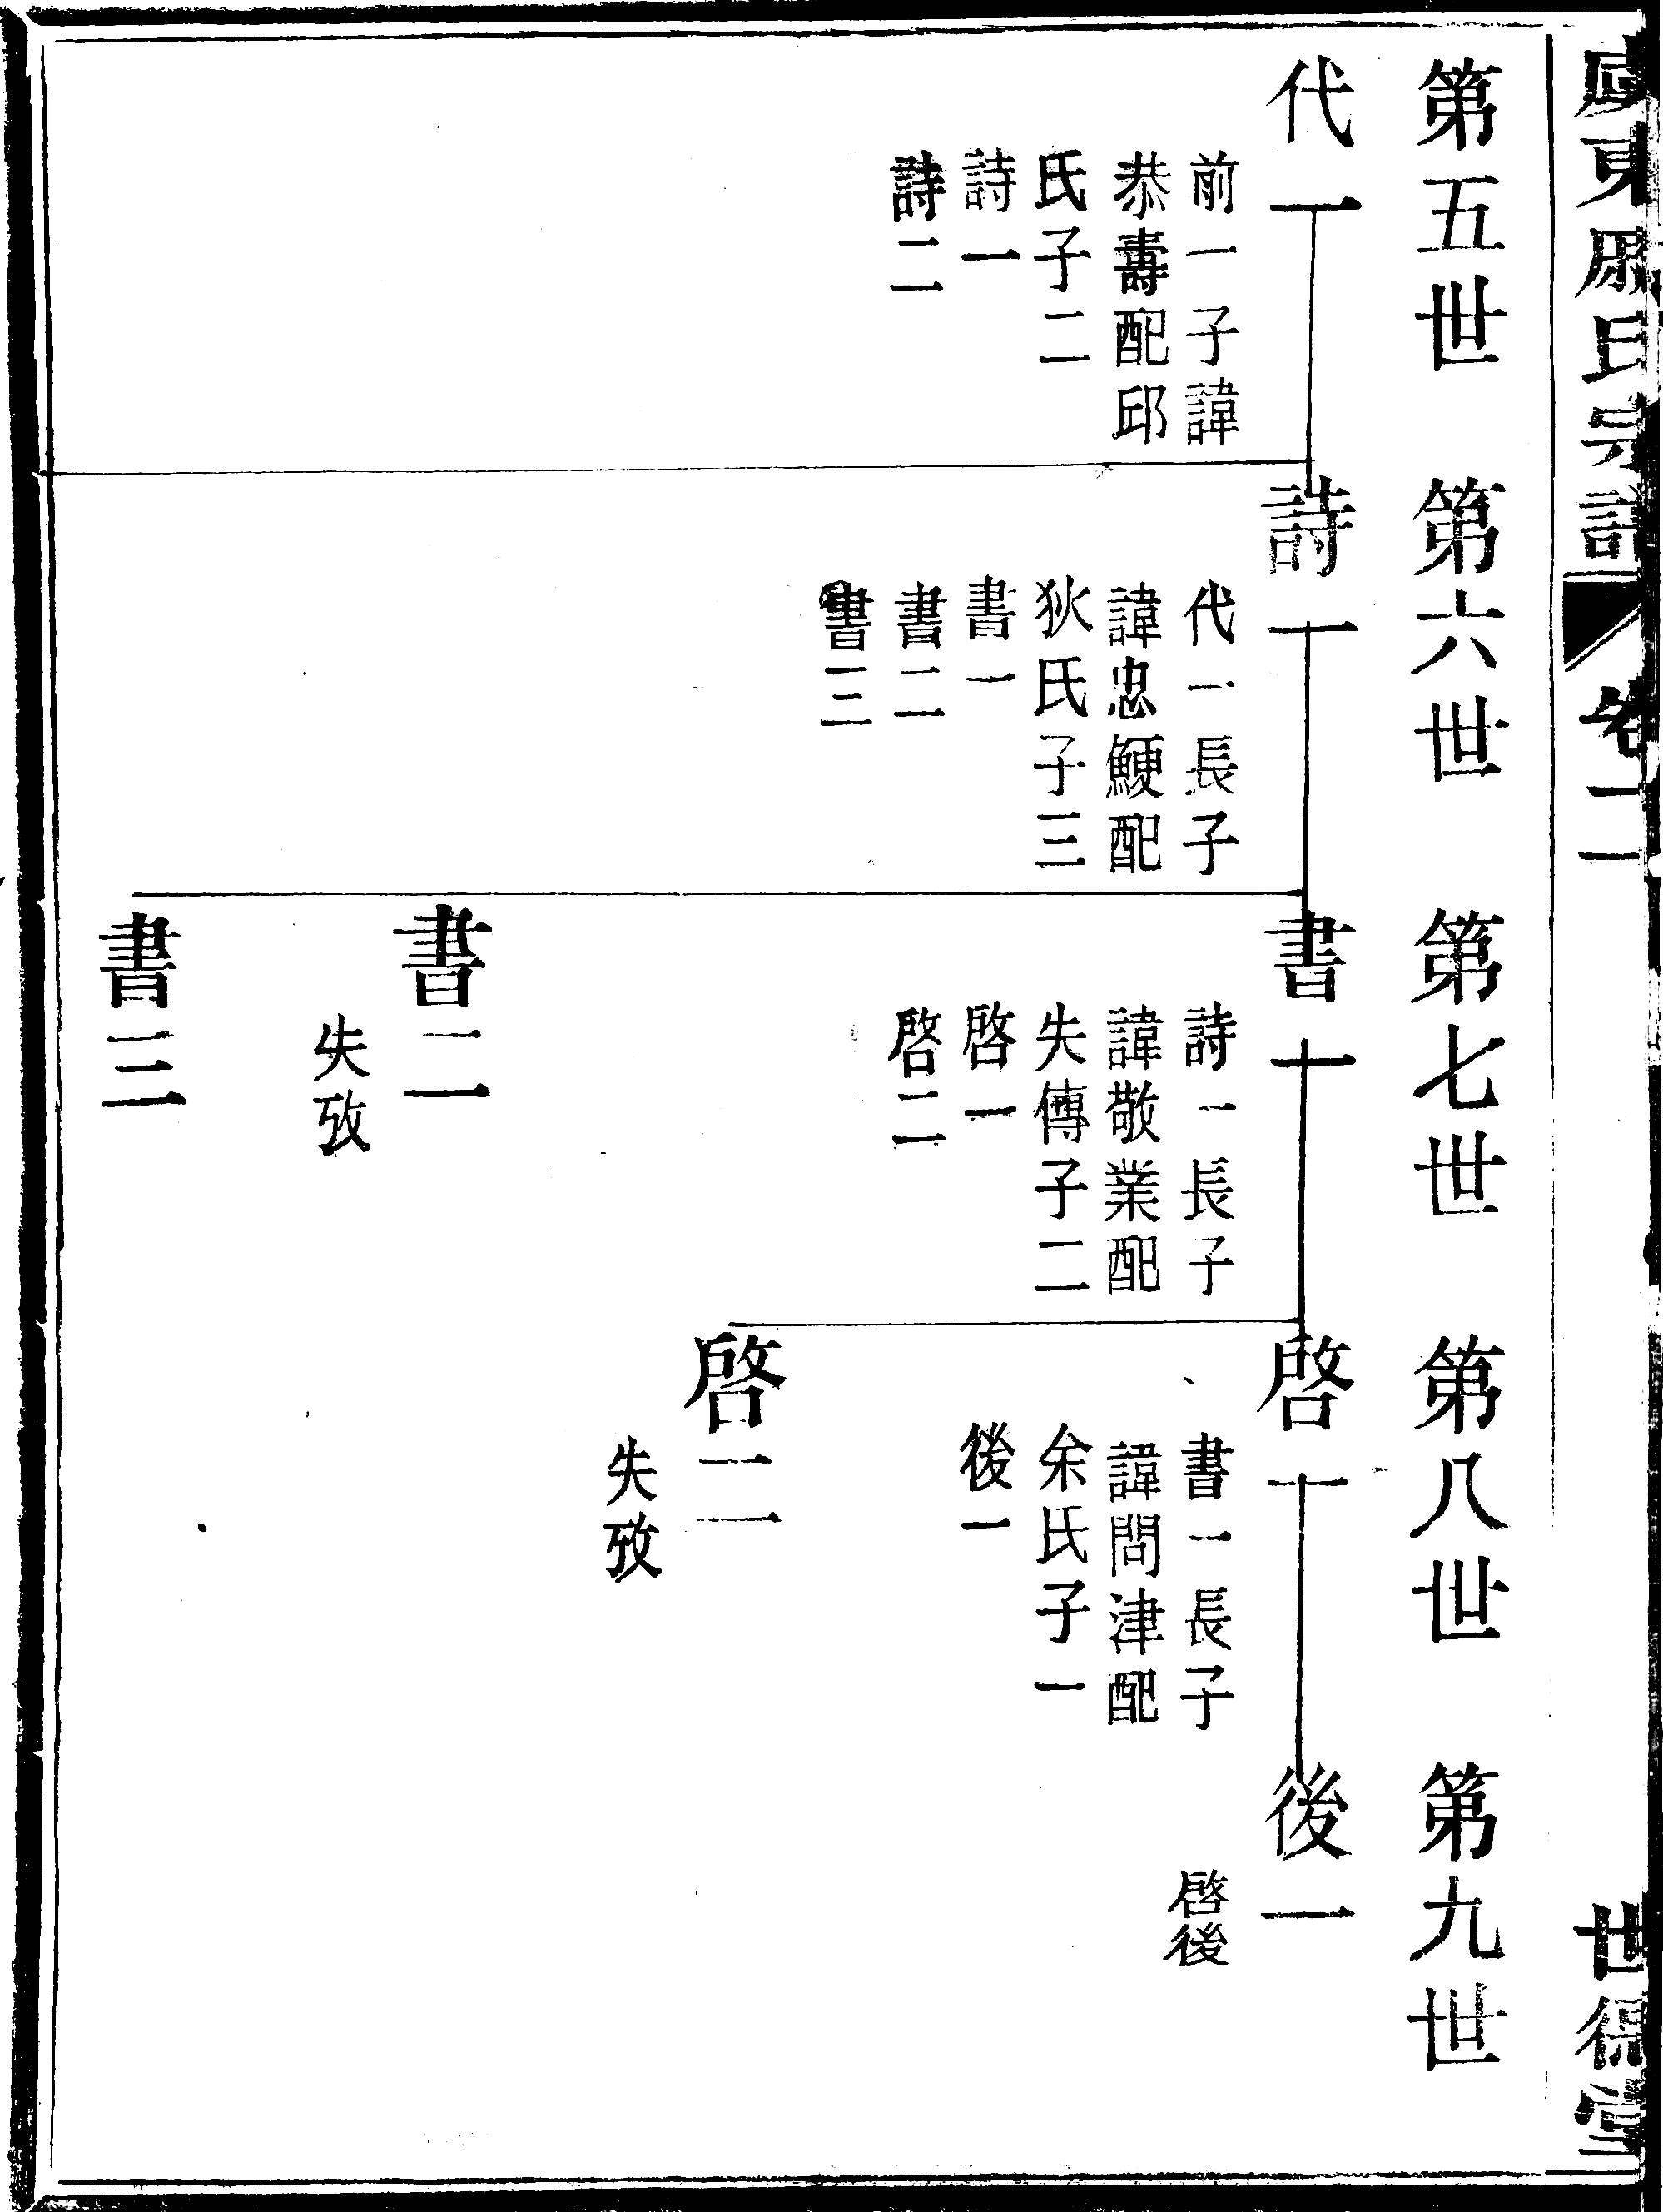 東
氏宗譜
卷二
世德堂
第五世
第六世
第七世
第八世
第九世
代一
前一子諱
恭壽配邱
氏子二
詩一
詩二
詩一
代一長子
諱忠鯁配
狄氏子三
書一
書二
書三
書一
詩一長子
諱敬業配
失傳子二
啓一
啓二
書二
失攷
書三
啓一
書一長子
諱問津配
余氏子一
後一
啓二
失攷
後一
啓後